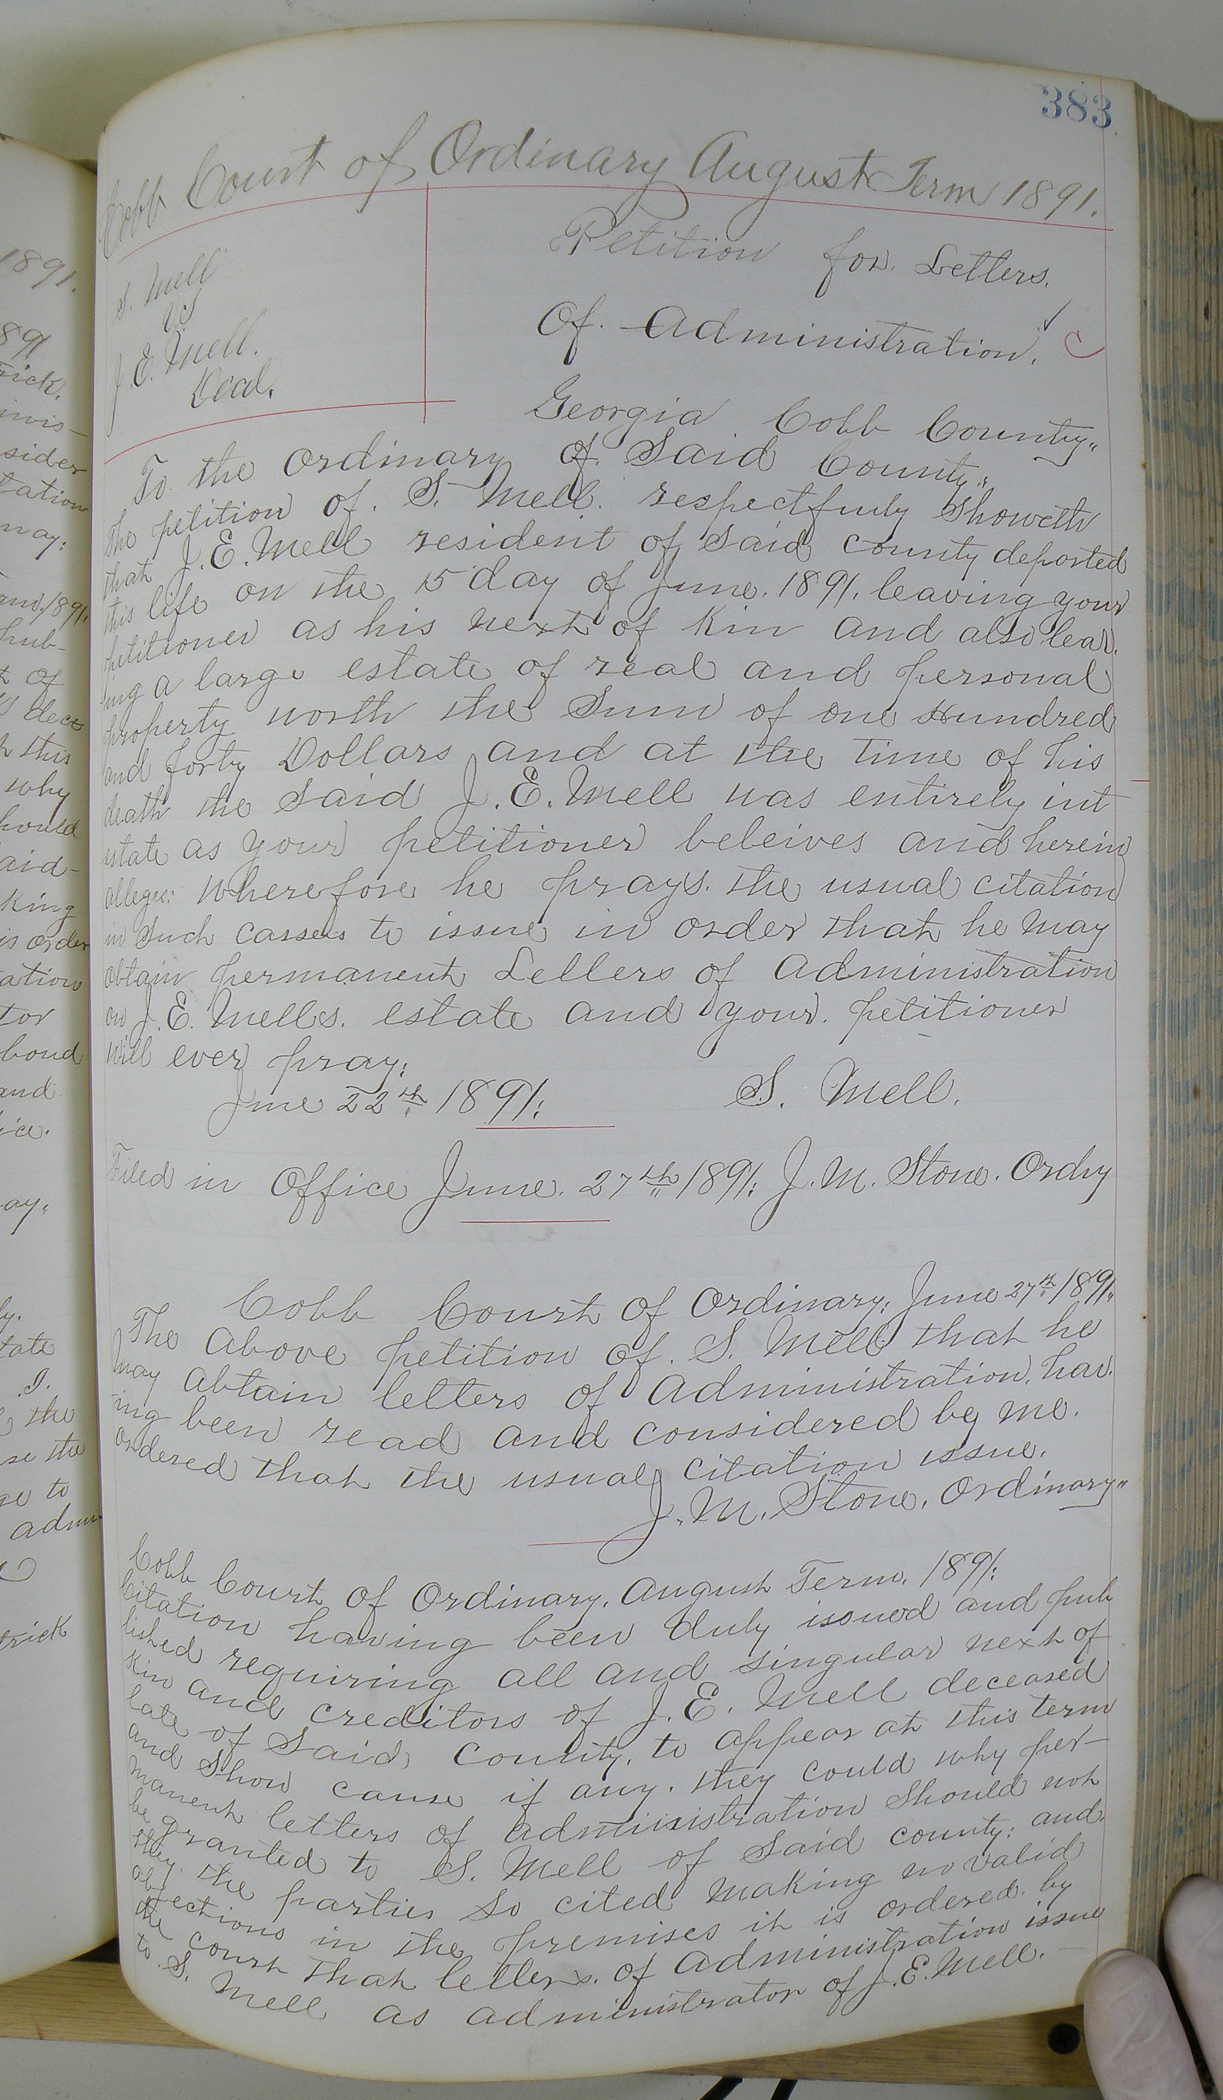 383
Cobb Court of Ordinary August Term 1891.
S. Mell
vs
J. E. Mell.
Decd.
Petition for Letters.
Of Administration.
Georgia Cobb County"
To the Ordinary of Said County"
The petition of. S. Mell. respectfuly Showeth
that J. E. Mell resident of Said County deported
this life on the 15 day of June. 1891. leaving your
petitioner as his next of kin and also leav.
ing a large estate of real and personal
property worth the Sum of one Hundred
and forty Dollars and at the time of his
death the Said J. E. Mell was entirely int
estate as your petitioner beleives and herein
alleges: Wherefore he prays. the usual citation
in Such casses to issue in order that he may
obtain permanent Letters of Administration
on J. E. Mells. estate and your. petitioner
will ever pray:
June 22th 1891: S. Mell.
Filed in Office June. 27th 1891: J. M. Stone. Ordry
Cobb Court of Ordinary: June 27th 1891:
The above petition of. S. Mell that he
may abtain letters of Administration. hav.
ing been read and considered by me.
ordered that the usual citation issue.
J. M. Stone. Ordinary"
Cobb Court of Ordinary. August Term. 1891:
Citation having been duly issued and pub
lished requiring all and singular next of
kin and creditors of J. E. Mell deceased
late of Said County. to appear at this term
and Show cause if any. they could why per-
manent letters of administration Should not
be granted to S. Mell of Said county: and.
they. the parties So cited making no valid
objections in the premises it is ordered by
the court that letters. of Administration issue
to S. Mell as administrator of J. E. Mell.
1891.
sider
tation
may:
of
this
why
king
is order
ation
tor
bond
and
tate
the
to